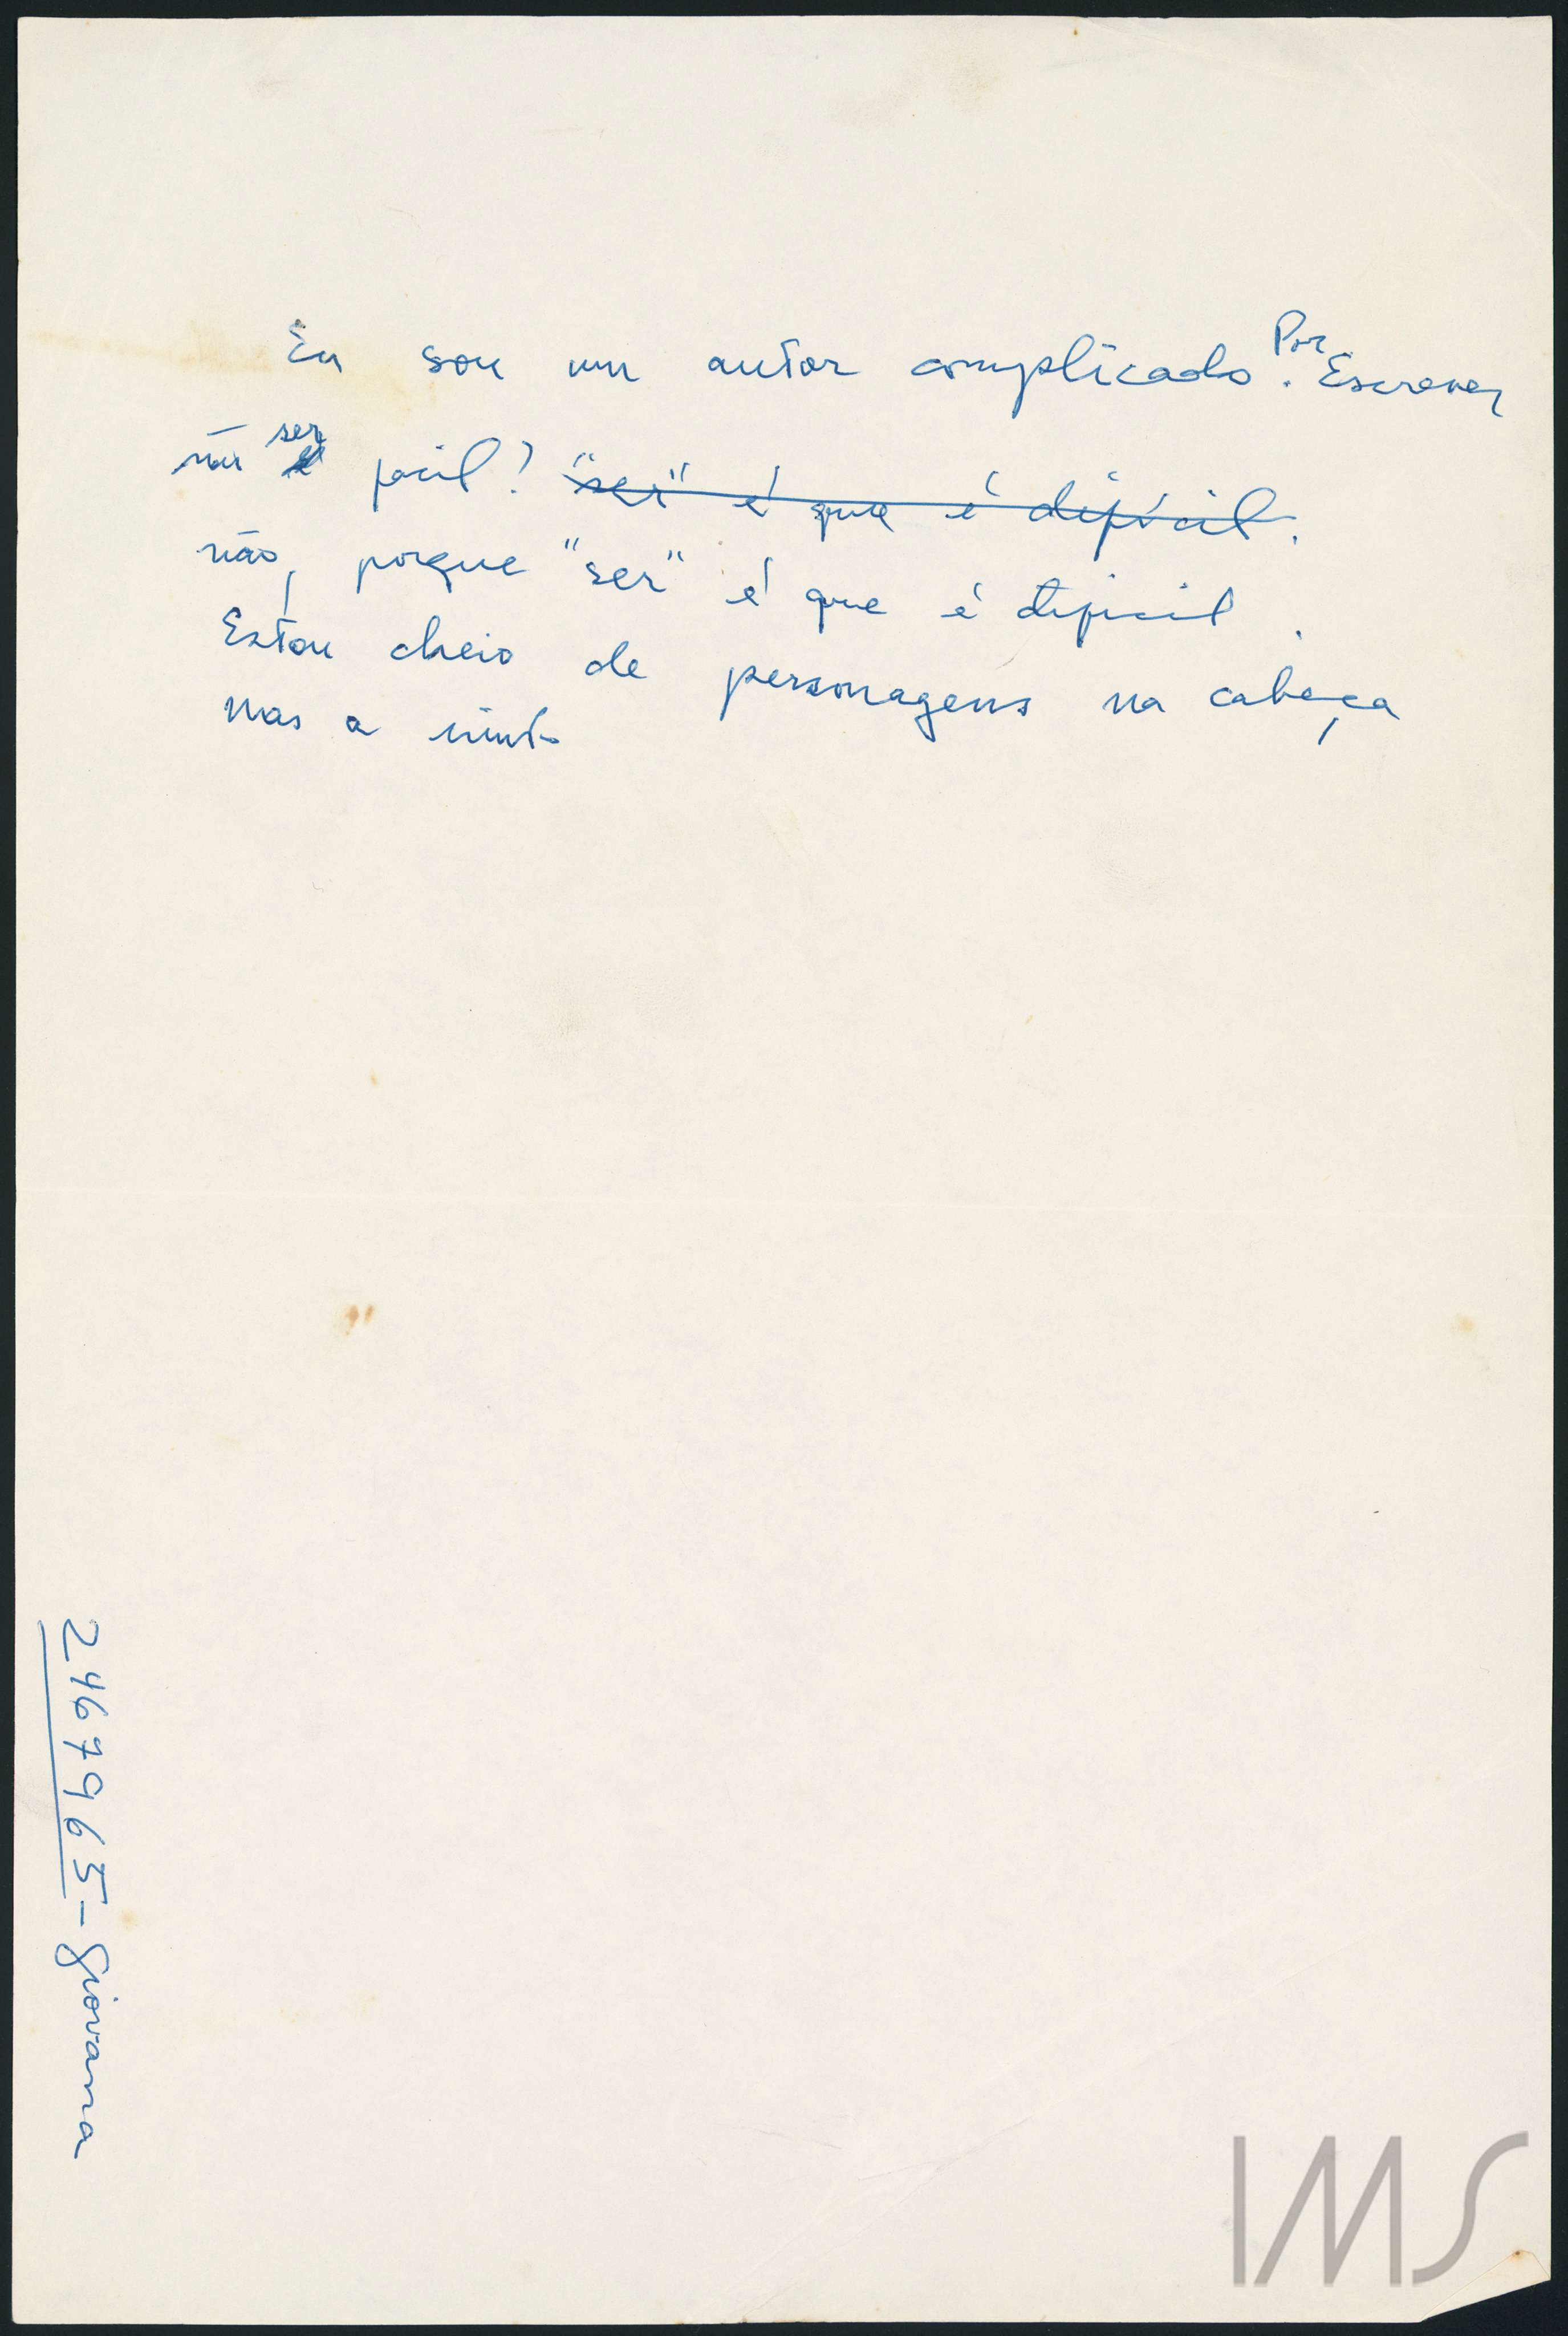 Eu sou um autor complicado. Por Escrever
não ser facil? ~~"ser" é que é difícil.~~
não, porque "ser" é que é dificil.
Estou cheio de personagens na cabeça
mas a
2467965 - Giovana
IMS